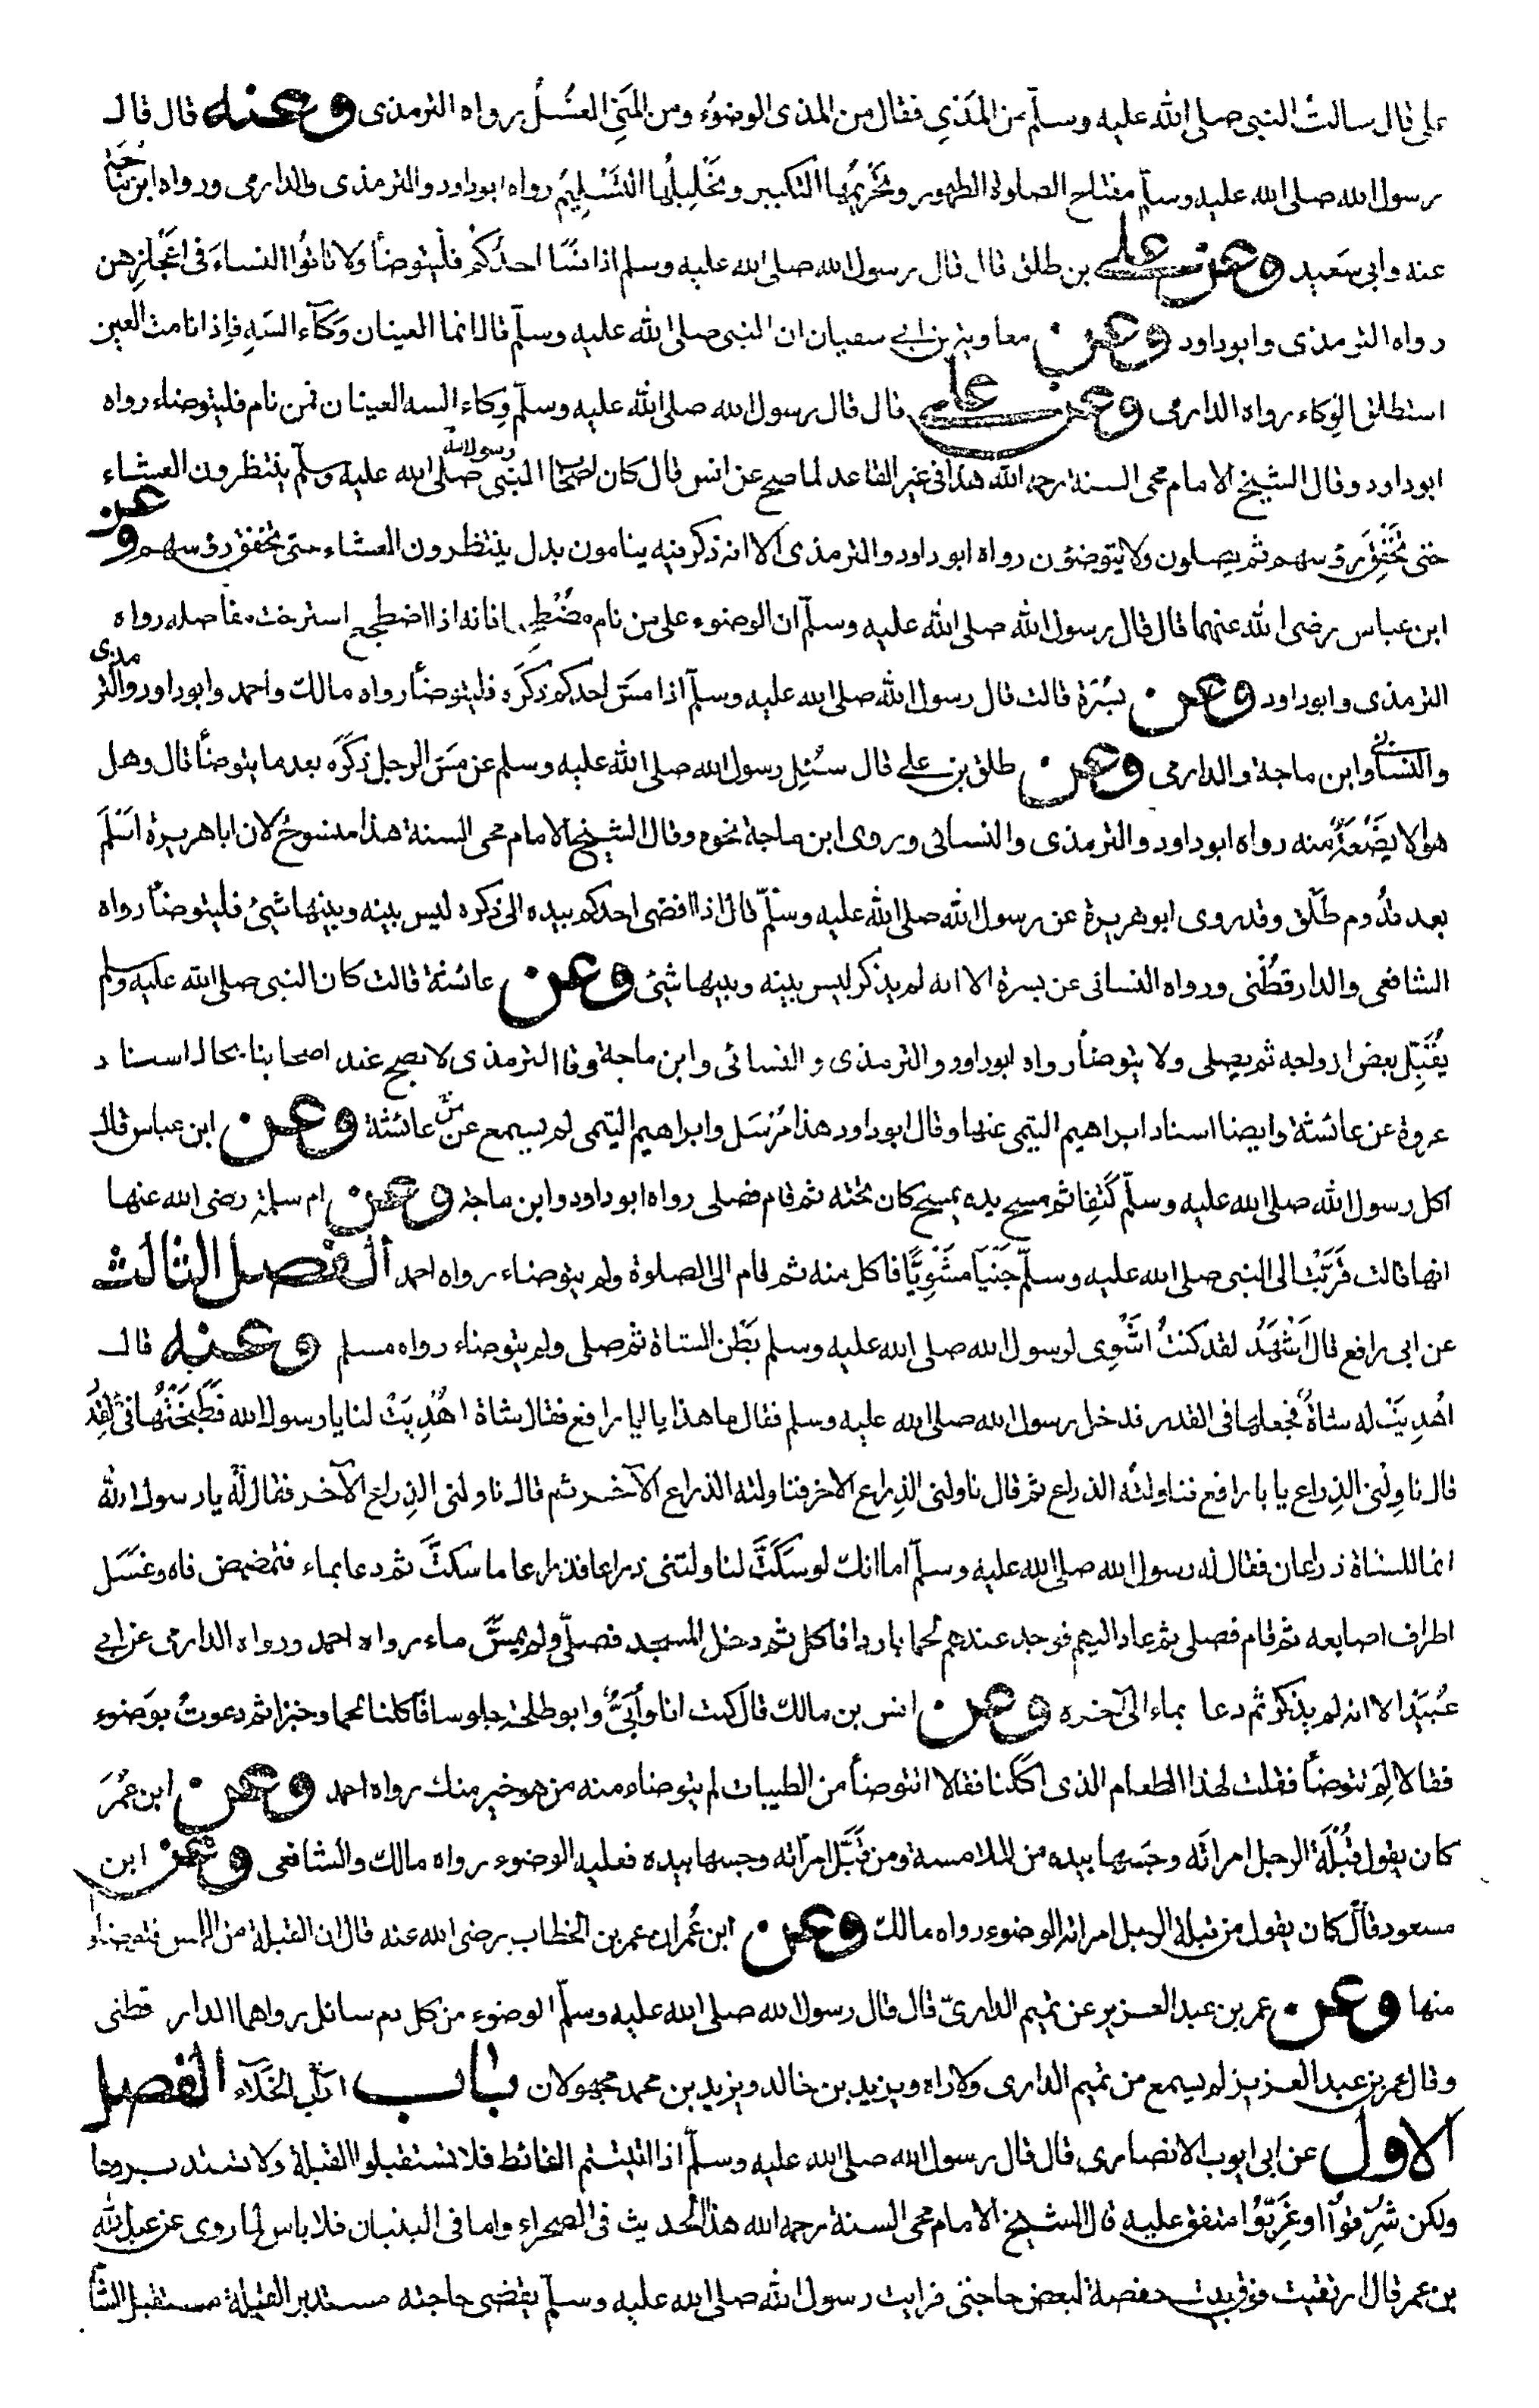 علی قال سالتُ النبی صلی الله علیه وسلّم عن المَذْیِ فقال من المذی الوضوُء ومن المَنِیِّ الغسُلُ رواه الترمذی وعنه قال قال
رسول الله صلی الله علیه وسلّم مفتاح الصلوة الطهور وتَحْرِیْمُها التکبیر وتَحْلِیلُها التَسْلِیْمُ رواه ابوداود والترمذی والدارمی ورواه ابن ماجَة
عنه وابی سَعِید وعن علی بن طلق قال قال رسول الله صلی الله علیه وسلم اذا فَسَا احدُکُم فلْیتوضأ ولا تاتُوا النساءَ فی اعْجَازِهن
رواه الترمذی وابوداود وعن معاویة بن ابی سفیان ان النبی صلی الله علیه وسلّم قال انما العینان وِکَآء السَهِ فاِذا نامت العین
استطلق الوِکاء رواه الدارمی وعن علی قال قال رسول الله صلی الله علیه وسلّم وِکاء السه العینان فمن نام فلیتوضاء رواه
ابوداود وقال الشیخ الامام محی السنة رحمه الله هذا فی غیر القاعد لما صح عن انس قال کان اصحاب النبی رسول الله صلی الله علیه وسلّم ینتظرون العشاء
حتی تَخْفِقَ رؤسهم ثم یصلون ولا یتوضؤن رواه ابوداود والترمذی الا انه ذکر فیه ینامون بدل ینتظرون العشاء حتی تخفق رؤسهم وعن
ابن عباس رضی الله عنهما قال قال رسول الله صلی الله علیه وسلّم ان الوضوء علی من نام مضْطجعا فانه اذا اضطجع استرخت مفاصله رواه
الترمذی وابوداود وعن بُسْرَة قالت قال رسول الله صلی الله علیه وسلّم اذا مسَّ احدکم ذکَرَه فلیتوضأ رواه مالک واحمد وابوداود والترمذی
والنسائی وابن ماجة والدارمی وعن طلق بن علی قال سُئِل رسول الله صلی الله علیه وسلم عن مسّ الرجل ذکَرَه بعد ما یتوضأ قال وهل
هو الا بَضْعَةٌ منه رواه ابوداود والترمذی والنسائی وروی ابن ماجة نحوه وقال الشیخ الامام محی السنة هذا منسوخ لان اباهریرة اَسْلَمَ
بعد قُدُوم طَلْق وقد روی ابوهریرة عن رسول الله صلی الله علیه وسلّم قال اذا افضی احدکم بیده الی ذکره لیس بینه وبینها شیئ فلیتوضأ رواه
الشافعی والدارقُطْنی ورواه النسائی عن بسرة الا انه لم یذکر لیس بینه وبینها شیئ وعن عائشة قالت کان النبی صلی الله علیه وسلم
یُقَبِّل بعض ازواجه ثم یصلی ولا یتوضأ رواه ابوداود والترمذی والنسائی وابن ماجة وقال الترمذی لا یصح عند اصحابنا بحال اسناد
عروة عن عائشة وایضا اسناد ابراهیم التیمی عنها وقال ابوداود هذا مُرْسَل وابراهیم التیمی لم یسمع عن من عائشة وعن ابن عباس قال
اکل رسول الله صلی الله علیه وسلّم کَتِفًا ثم مسح یده بمسح کان تحته ثم قام فصلی رواه ابوداود وابن ماجة وعن ام سلمة رضی الله عنها
انها قالت قَرَّبْتُ الی النبی صلی الله علیه وسلّم جَنْبًا مَشْوِیًّا فاکل منه ثم قام الی الصلوة ولم یتوضاء رواه احمد الفصل الثالث
عن ابی رافع قال اَشْهَدُ لقد کنتُ اَشْوِی لرسول الله صلی الله علیه وسلم بَطْن الشاة ثم صلی ولم یتوضاء رواه مسلم وعنه قال
اُهْدِیَتْ له شاةٌ فجعلها فی القدر فدخل رسول الله صلی الله علیه وسلم فقال ما هذا یا ابا رافع فقال شاة اُهْدِیَتْ لنا یا رسول الله فَطَبَخْتُها فی القِدْر
قال ناوِلْنی الذِراع یا با رافع فناولتُه الذراع ثم قال ناولنی الذِراع الاخر فناولته الذراع الآخر ثم قال ناولنی الذِراع الآخر فقال لَه یا رسول الله
انما للشاة ذراعان فقال له رسول الله صلی الله علیه وسلّم اما انک لو سَکَتَّ لناولتنی ذراعا فذراعا ما سکتَّ ثم دعا بماء فتمضمض فاه وغَسَل
اطراف اصابعه ثم قام فصلی ثم عاد الیهم فوجد عندهم لحما باردا فاکل ثم دخل المسجد فصلّی ولم یمسَّ ماء رواه احمد ورواه الدارمی عن ابی
عُبَیْد الا انه لم یذکر ثم دعا بماء الی آخره وعن انس بن مالک قال کنت انا واُبَیٌّ وابوطلحة جلوسا فاکلنا لحما وخبزا ثم دعوتُ بوَضوء
فقالا لِمَ تتوضأ فقلت لهذا الطعام الذی اکلنا فقالا اتتوضأ من الطیبات لم یتوضاء منه من هو خیر منک رواه احمد وعن ابن عُمَرَ
کان یقول قُبْلَة الرجل امراتَه وجَسّها بیده من الملامسة ومن قَبَّل امرأته وجسها بیده فعلیه الوضوء رواه مالک والشافعی وعن ابن
مسعود قال کان یقول من قبلة الرجل امراته الوضوء رواه مالک وعن ابن عُمر ان عمر بن الخطاب رضی الله عنه قال ان القبلة من اللمس فتوضاؤ
منها وعن عمر بن عبد العزیز عن تمیم الداریّ قال قال رسول الله صلی الله علیه وسلّم الوضوء من کل دم سائل رواهما الدار قطنی
وقال عمر بن عبد العزیز لم یسمع من تمیم الداری ولا راه ویزید بن خالد ویزید بن محمد مجهولان باب اداب الخلآء الفصل
الاول عن ابی ایوب الانصاری قال قال رسول الله صلی الله علیه وسلّم اذا اتیتم الغائط فلا تستقبلوا القبلة ولا تستدبروها
ولکن شَرِّقُوْا او غَرِّبُوْا متفق علیه قال الشیخ الامام محی السنة رحمه الله هذا الحدیث فی الصحراء واما فی البنیان فلا باس لما روی عن عبد الله
بن عمر قال ارتقیت فوق بیت حفصة لبعض حاجتی فرایت رسول الله صلی الله علیه وسلّم یقضی حاجته مستدبر القبلة مستقبل الشأ